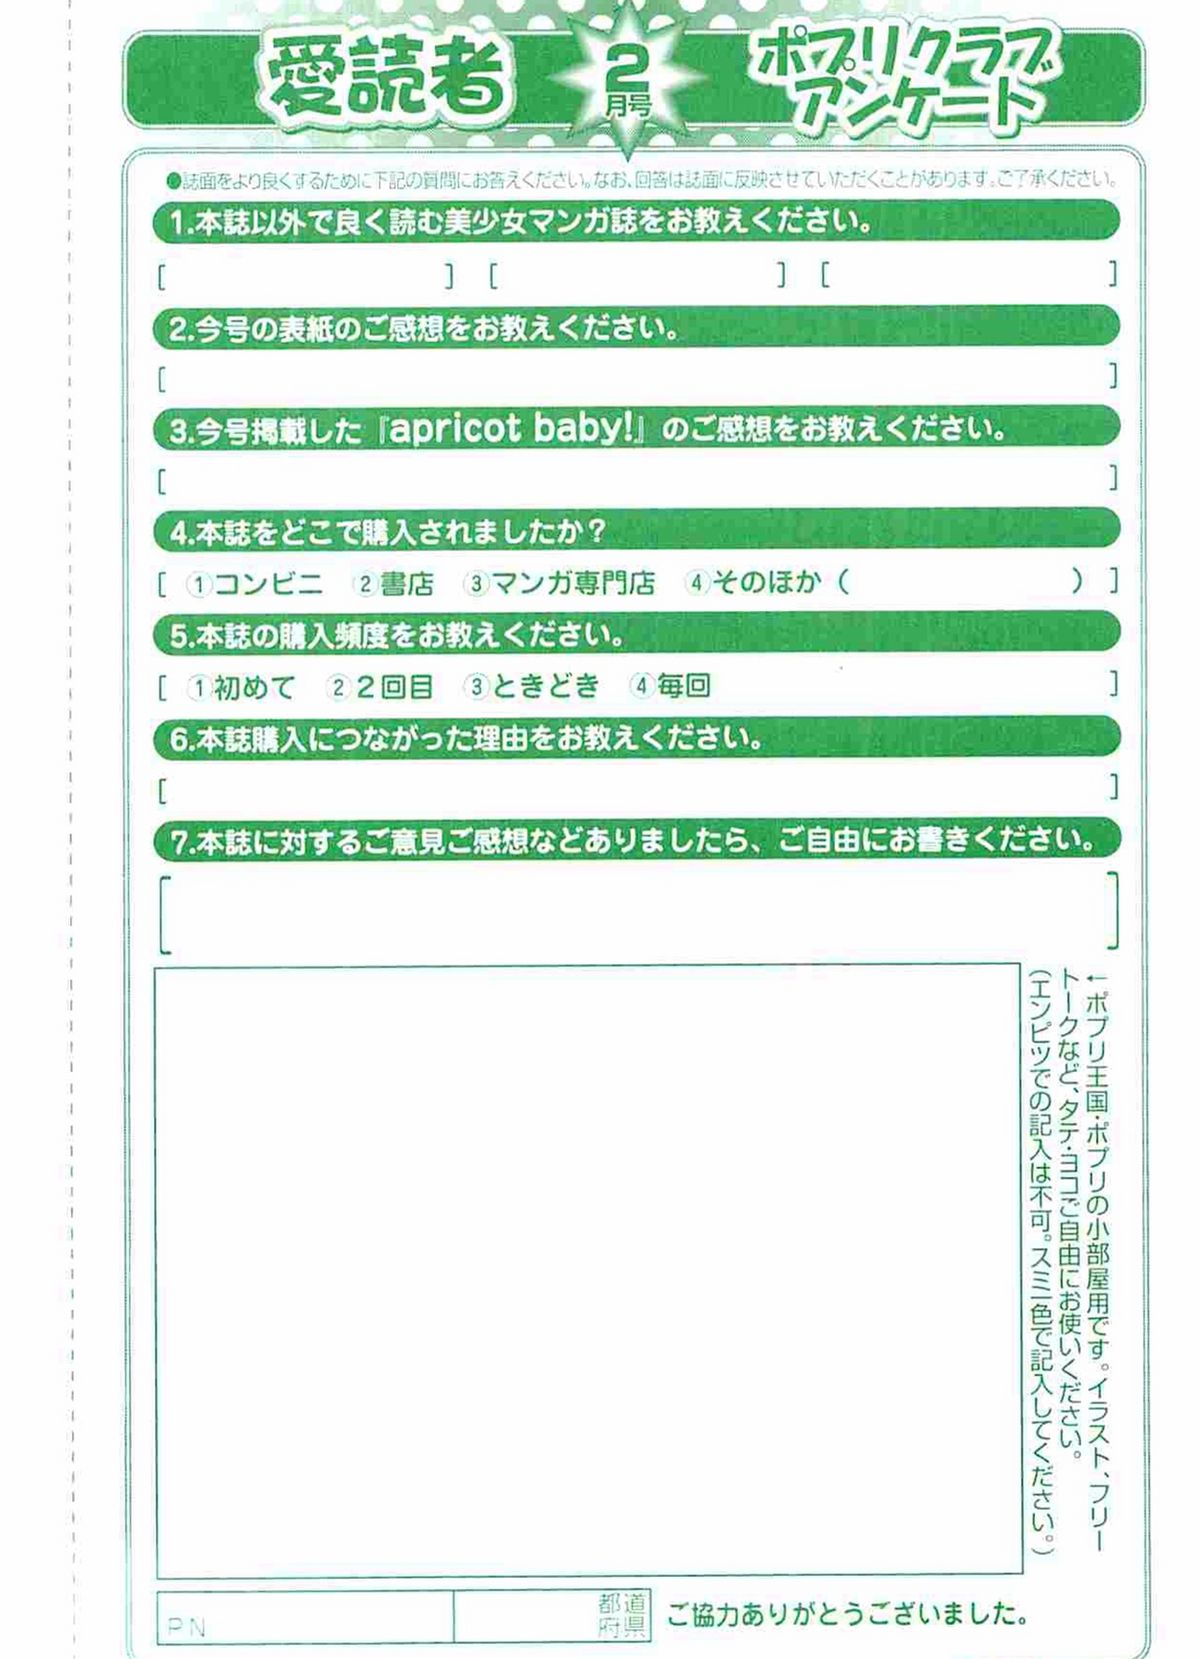 愛読者
2
月号
ポプリクラブ
アンケート
●誌面をより良くするために下記の質問にお答えください。なお、回答は誌面に反映させていただくことがあります。ご了承ください。
1.本誌以外で良く読む美少女マンガ誌をお教えください。
[ ] [ ] [ ]
2.今号の表紙のご感想をお教えください。
[ ]
3.今号掲載した『apricot baby!』のご感想をお教えください。
[ ]
4.本誌をどこで購入されましたか？
[ ①コンビニ ②書店 ③マンガ専門店 ④そのほか（ ） ]
5.本誌の購入頻度をお教えください。
[ ①初めて ②２回目 ③ときどき ④毎回 ]
6.本誌購入につながった理由をお教えください。
[ ]
7.本誌に対するご意見ご感想などありましたら、ご自由にお書きください。
[ ]
←ポプリ王国・ポプリの小部屋用です。イラスト、フリー
トークなど、タテ・ヨコご自由にお使いください。
（エンピツでの記入は不可。スミ一色で記入してください。）
PN
都道
府県
ご協力ありがとうございました。